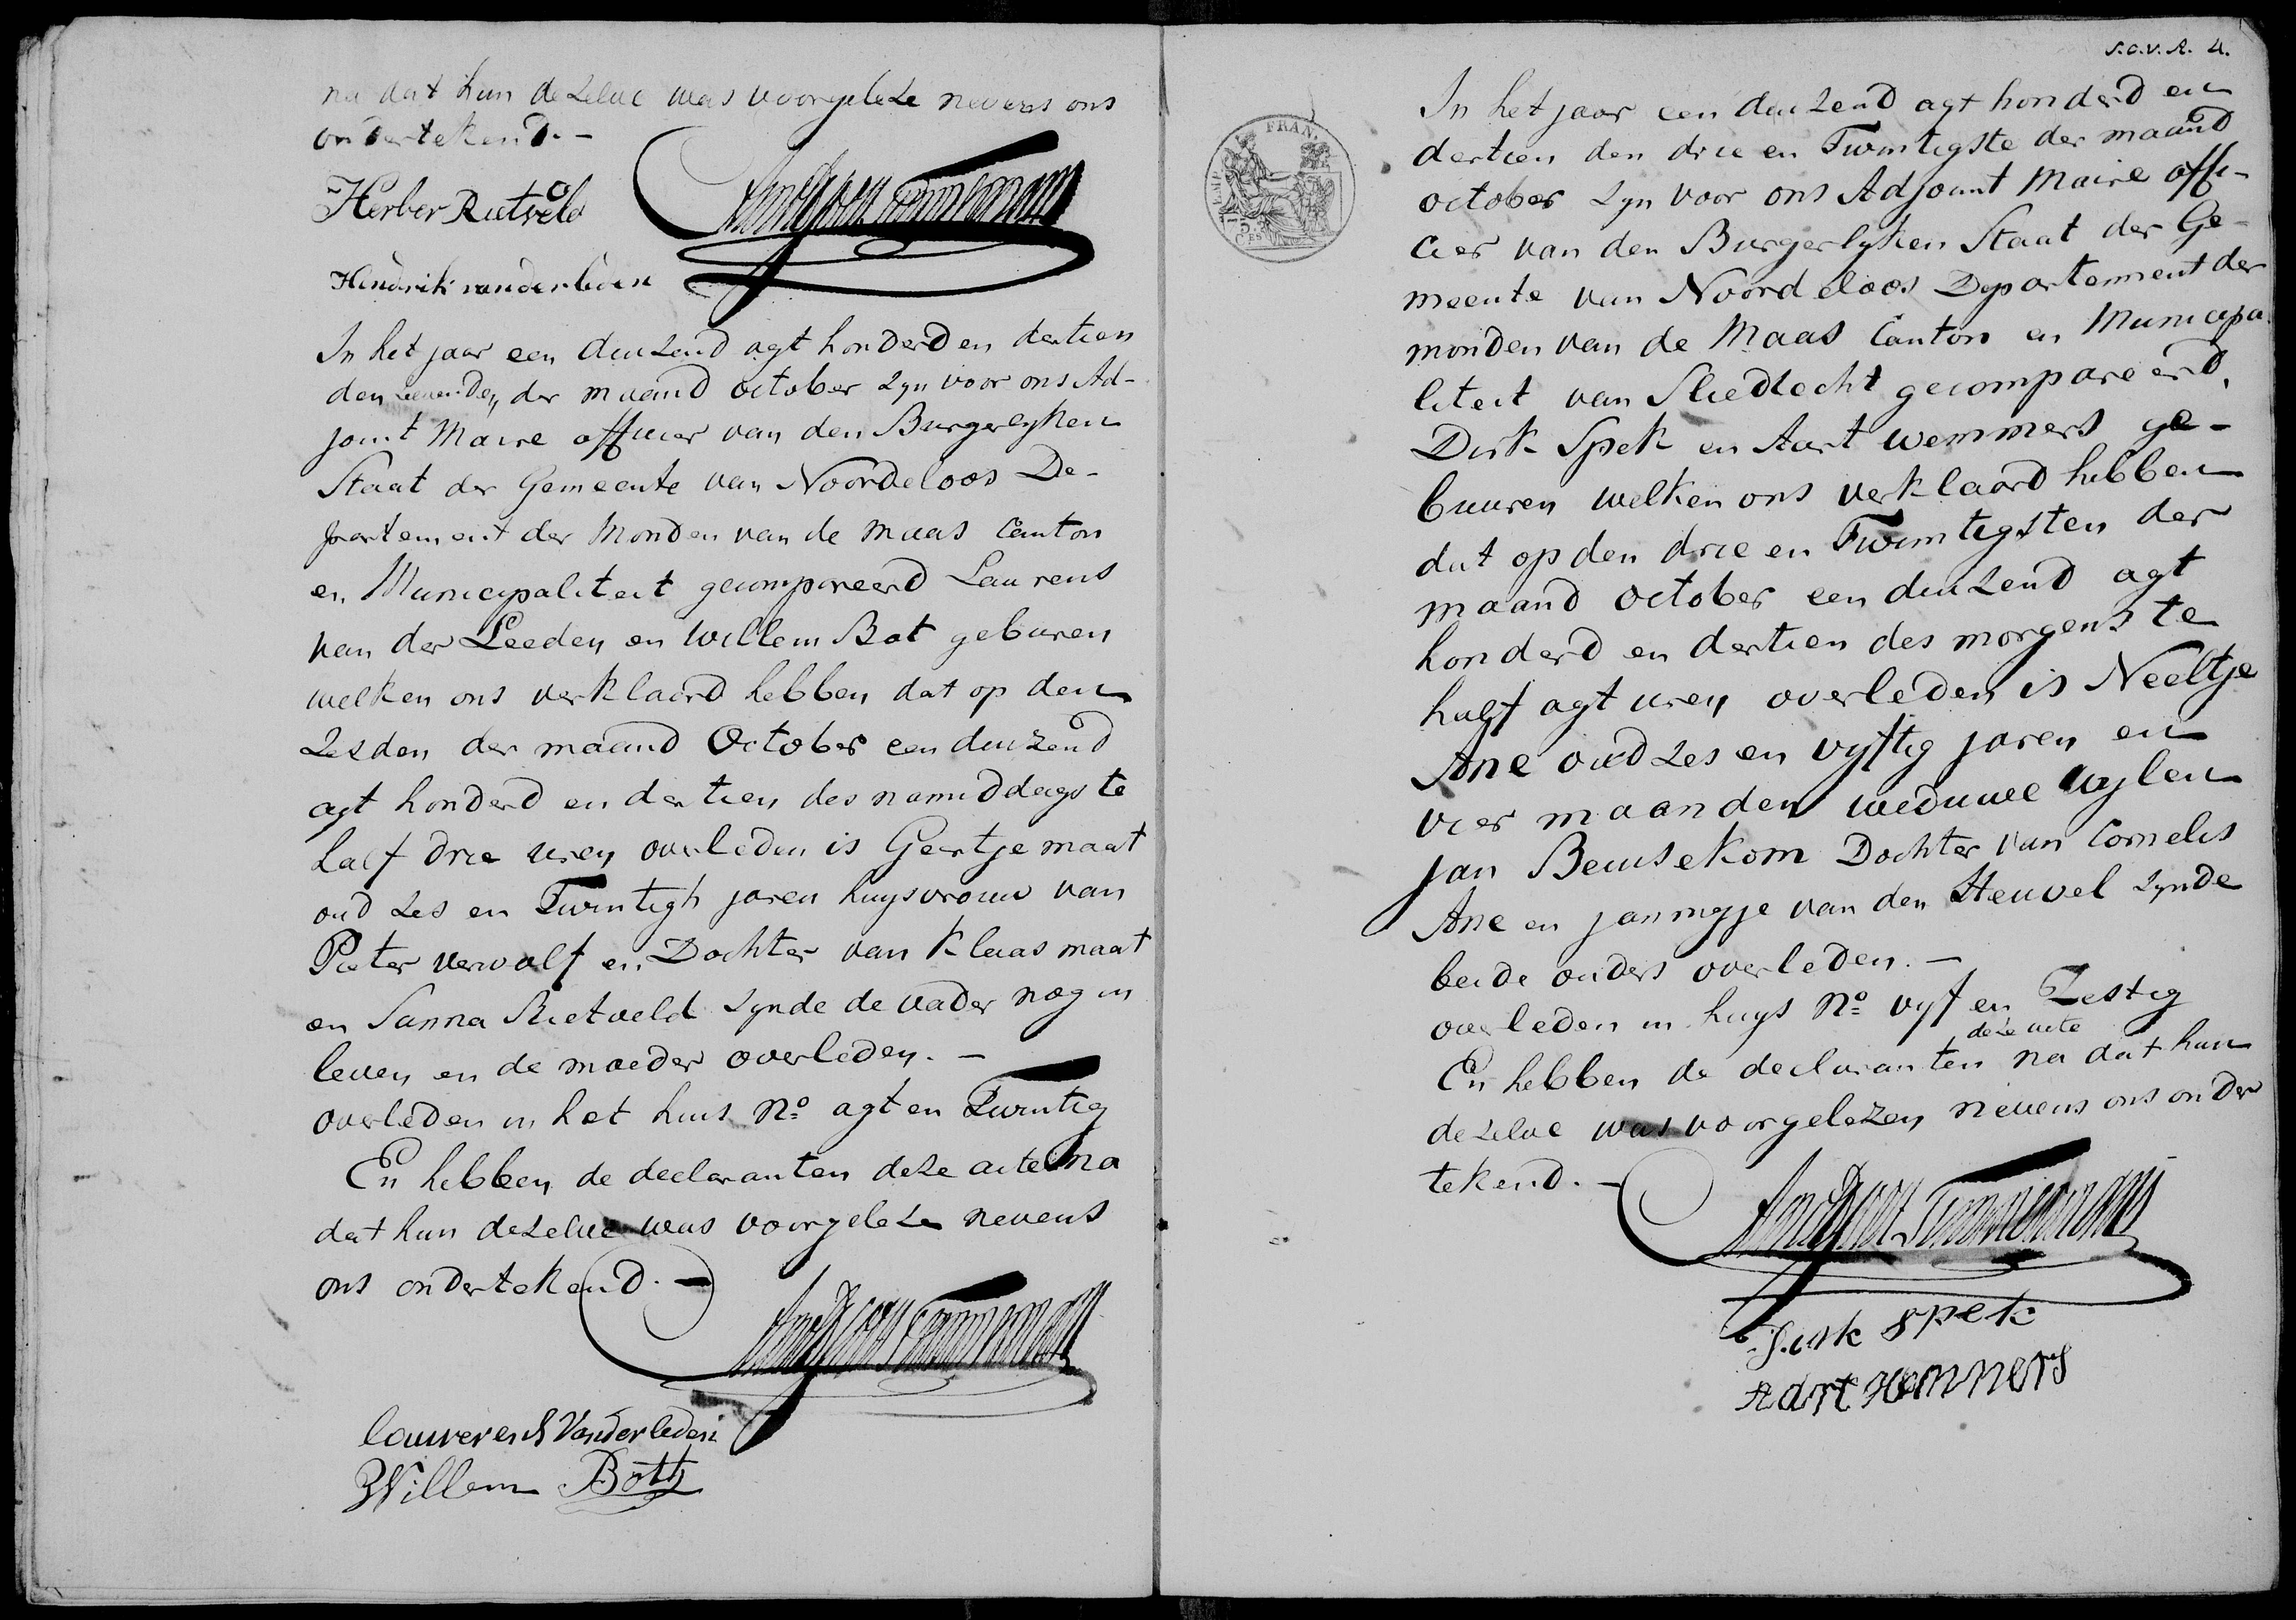 na dat hun dezelve was voorgeleze nevens ons
ondertekend. -
Herber Rietveld
Hendrik van der leden
In het jaar een duizend agt honderd en dertien
den zevenden der maand october zyn voor ons Ad-
joint Maire officier van den Burgerlyken
Staat der Gemeente van Noordeloos De-
partement der Monden van de Maas Canton
en Municipaliteit gecompareerd Laurens
van der Leeden en Willem Bot geburen
welken ons verklaard hebben dat op den
Zesden der maand October een duizend
agt honderd en dertien des namiddags te
half drie uren overleden is Geertje maat
oud zes en Twintigh jaren huysvrouw van
Pieter verwolf en Dochter van Klaas maat
en Sanna Rietveld zynde de vader nog in
leven en de moeder overleden. -
overleden in het huis No agt en Twintig
En hebben de declaranten deze acte na
dat hun dezelve was voorgeleze nevens
ons ondertekend. -
louwerens Van der leden
Willem Bott
S.C.V.R. 4.
FRAN.
In het jaar een duizend agt honderd en
dertien den drie en Twintigste der maand
october zyn voor ons Adjoint Maire offi-
cier van den Burgerlyken Staat der Ge-
meente van Noordeloos Departement der
monden van de Maas Canton en Municipa
liteit van Sliedrecht gecompareerd,
Dirk Spek en Aart wemmers ge-
buuren welken ons verklaard hebben
dat op den drie en Twintigsten der
maand october een duizend agt
honderd en dertien des morgens te
half agt uren overleden is Neeltje
Ane oud zes en vyftig jaren en
vier maanden weduwe wylen
Jan Beusekom Dochter van Cornelis
Ane en Jannigje van den Heuvel zynde
beide ouders overleden. -
overleden in huys No vyf en Zestig
deze acte
En hebben de declaranten na dat hun
dezelve was voorgelezen nevens ons onder
tekend. -
Dirk Spek
Aart Wemmers